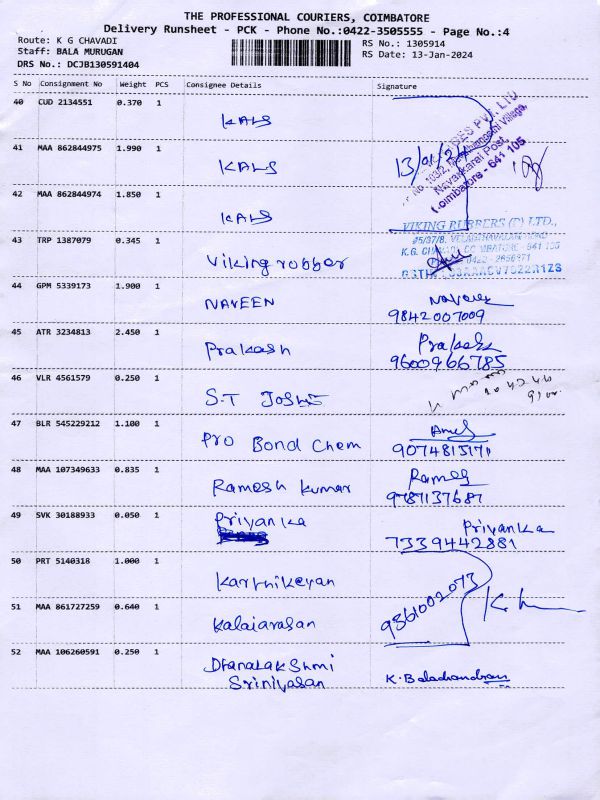 THE PROFESSIONAL COURIERS, COIMBATORE
Delivery Runsheet - PCK - Phone No.:0422-3505555 - Page No.:4
Route: K G CHAVADI
Staff: BALA MURUGAN
DRS No.: DCJB130591404
RS No.: 1305914
RS Date: 13-Jan-2024
S No Consignment No Weight PCS Consignee Details Signature
40 CUD 2134551 0.370 1 KALS
41 MAA 862844975 1.990 1 KALS 13/01/24
Navakkarai Post,
Coimbatore - 641 105
42 MAA 862844974 1.850 1 KALS
43 TRP 1387079 0.345 1 Viking robber
VIKING RUBBERS (P) LTD.,
44 GPM 5339173 1.900 1 NAVEEN Naveen
9842007009
45 ATR 3234813 2.450 1 Prakash Prakash
9600966785
46 VLR 4561579 0.250 1 S.T Joshi
47 BLR 545229212 1.100 1 Pro Bond Chem
48 MAA 107349633 0.835 1 Ramesh Kumar Ramesh
9787137687
49 SVK 30188933 0.050 1 Priyanka Priyanka
7339442881
50 PRT 5140318 1.000 1 Karthikeyan
51 MAA 861727259 0.640 1 Kalaiarasan 9361002073
52 MAA 106260591 0.250 1 Dhanalakshmi
Srinivasan K.Baladhandran